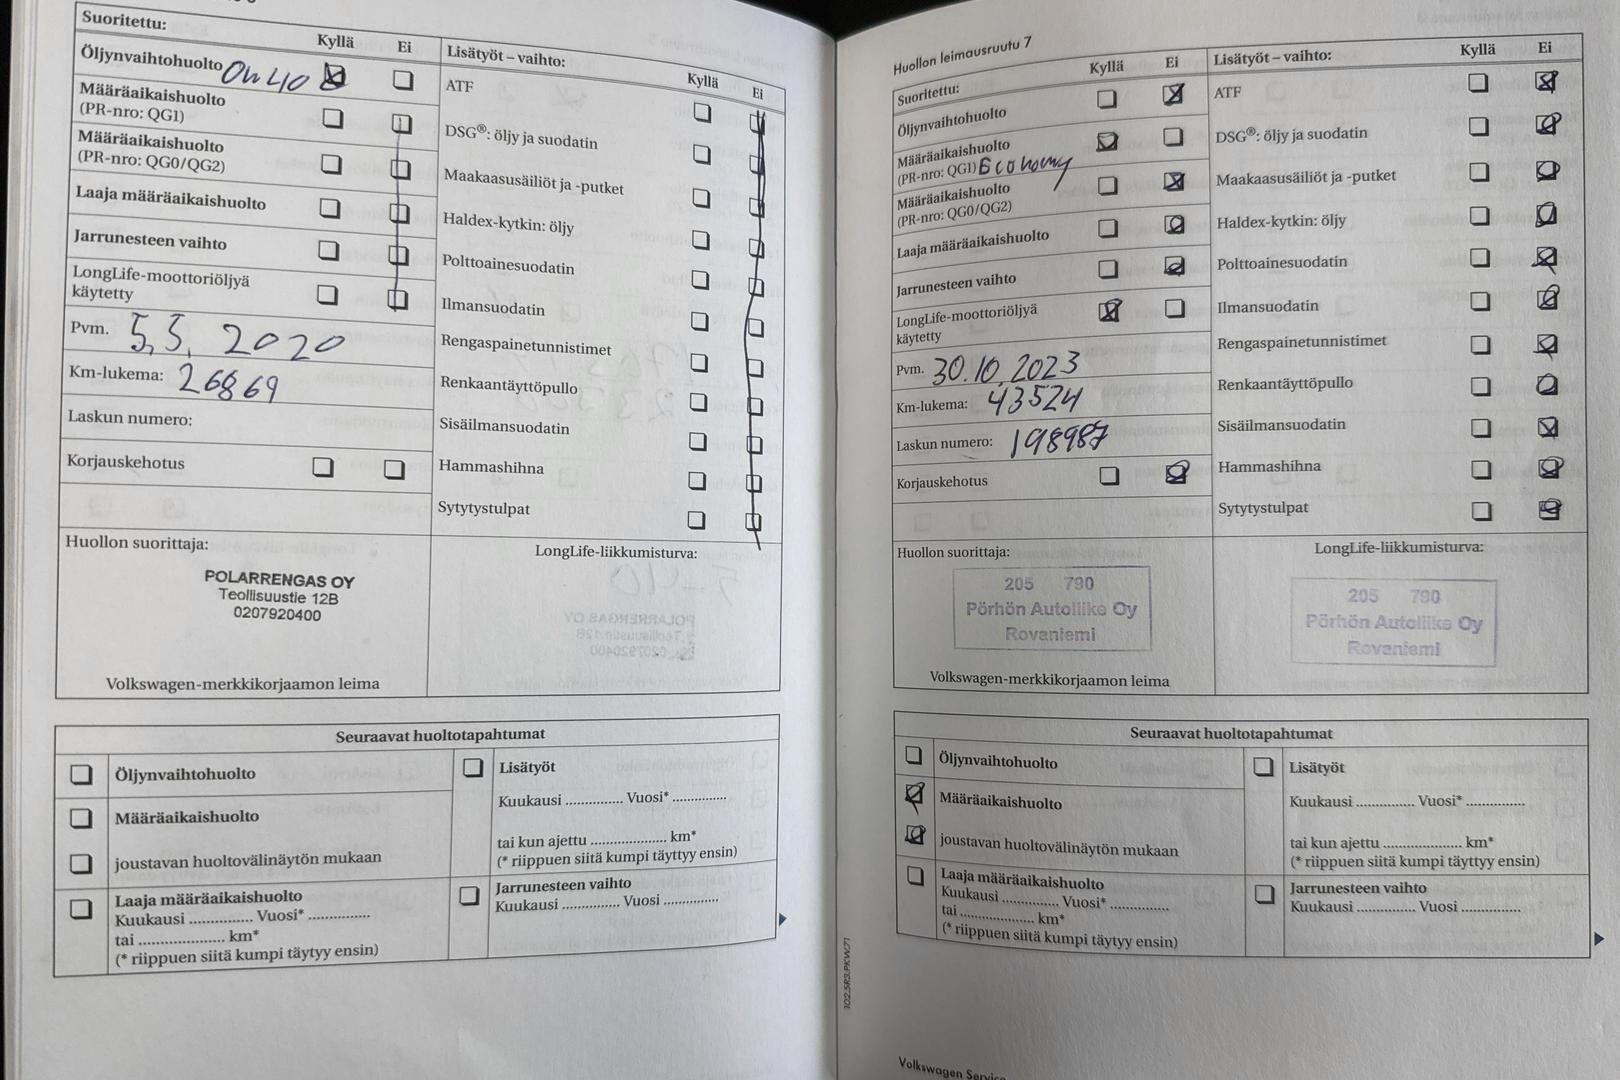 Suoritettu:
Kyllä
Ei
Öljynvaihtohuolto 0W40
Määräaikaishuolto
(PR-nro: QG1)
Määräaikaishuolto
(PR-nro: QG0/QG2)
Laaja määräaikaishuolto
Jarrunesteen vaihto
LongLife-moottoriöljyä
käytetty
Pvm. 5.5. 2020
Km-lukema: 26869
Laskun numero:
Korjauskehotus
Lisätyöt – vaihto:
Kyllä
Ei
ATF
DSG®: öljy ja suodatin
Maakaasusäiliöt ja -putket
Haldex-kytkin: öljy
Polttoainesuodatin
Ilmansuodatin
Rengaspainetunnistimet
Renkaantäyttöpullo
Sisäilmansuodatin
Hammashihna
Sytytystulpat
Huollon suorittaja:
POLARRENGAS OY
Teollisuustie 12B
0207920400
Volkswagen-merkkikorjaamon leima
LongLife-liikkumisturva:
Seuraavat huoltotapahtumat
Öljynvaihtohuolto
Määräaikaishuolto
joustavan huoltovälinäytön mukaan
Laaja määräaikaishuolto
Kuukausi ............... Vuosi* ...............
tai ..................... km*
(* riippuen siitä kumpi täytyy ensin)
Lisätyöt
Kuukausi ............... Vuosi* ...............
tai kun ajettu .................... km*
(* riippuen siitä kumpi täyttyy ensin)
Jarrunesteen vaihto
Kuukausi ............... Vuosi ...............
Huollon leimausruutu 7
Suoritettu:
Kyllä
Ei
Öljynvaihtohuolto
Määräaikaishuolto
(PR-nro: QG1) Economy
Määräaikaishuolto
(PR-nro: QG0/QG2)
Laaja määräaikaishuolto
Jarrunesteen vaihto
LongLife-moottoriöljyä
käytetty
Pvm. 30.10.2023
Km-lukema: 43524
Laskun numero: 198987
Korjauskehotus
Lisätyöt – vaihto:
Kyllä
Ei
ATF
DSG®: öljy ja suodatin
Maakaasusäiliöt ja -putket
Haldex-kytkin: öljy
Polttoainesuodatin
Ilmansuodatin
Rengaspainetunnistimet
Renkaantäyttöpullo
Sisäilmansuodatin
Hammashihna
Sytytystulpat
Huollon suorittaja:
205 790
Pörhön Autoliike Oy
Rovaniemi
Volkswagen-merkkikorjaamon leima
LongLife-liikkumisturva:
205 790
Pörhön Autoliike Oy
Rovaniemi
Seuraavat huoltotapahtumat
Öljynvaihtohuolto
Määräaikaishuolto
joustavan huoltovälinäytön mukaan
Laaja määräaikaishuolto
Kuukausi ............... Vuosi* ...............
tai ..................... km*
(* riippuen siitä kumpi täytyy ensin)
Lisätyöt
Kuukausi ............... Vuosi* ...............
tai kun ajettu .................... km*
(* riippuen siitä kumpi täyttyy ensin)
Jarrunesteen vaihto
Kuukausi ............... Vuosi ...............
102.5R3.PKW.71
Volkswagen Service